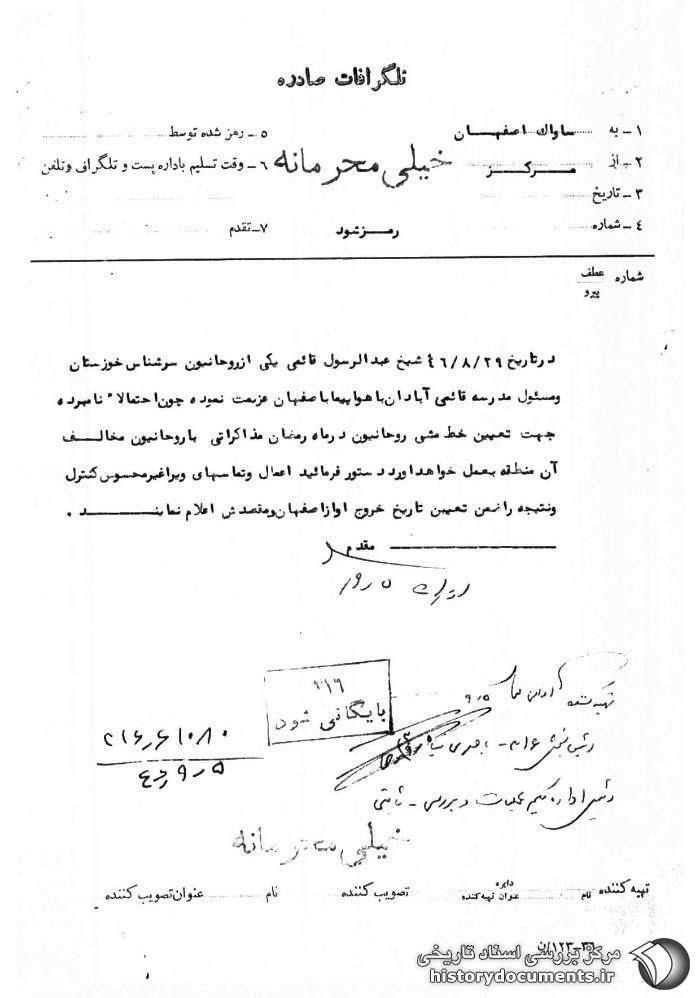 تلگرافات صادره
۱ـ به ساواك اصفهـــان
۵ـ رمز شده توسط
۲ـ از مــركــز
خیلی محرمانه
۶ـ وقت تسلیم باداره پست و تلگراف وتلفن
۳ـ تاریخ
۴ـ شماره
رمــزشود
۷ـ تقدم
شماره عطف
پیرو
درتاریخ ۴۶/۸/۲۹ شیخ عبدالرسول قائمی یکی ازروحانیون سرشناس خوزستان
ومسئول مدرسه قائمی آبادان باهواپیما باصفهان عزیمت نموده چون احتمالا" نامبرده
جهت تعیین خط مشی روحانیون درماه رمضان مذاکراتی باروحانیون مخالــف
آن منطقه بعمل خواهدآورد دستور فرمائید اعمال وتماسهای ویراغیرمحسوس کنترل
ونتیجه راضمن تعیین تاریخ خروج اوازاصفهان ومقصدش اعلام نماینــــــد .
مقدم
۳۱۶
بایگانی شود
تهیه کننده
رئیس بخش ۳۱۶ -
رئیس اداره یکم عملیات و بررسی - ثابتی
خیلی محرمانه
تهیه کننده نام
دایره
عنوان تهیه کننده
تصویب کننده نام عنوان تصویب کننده
مرکز بررسی اسناد تاریخی
historydocuments.ir